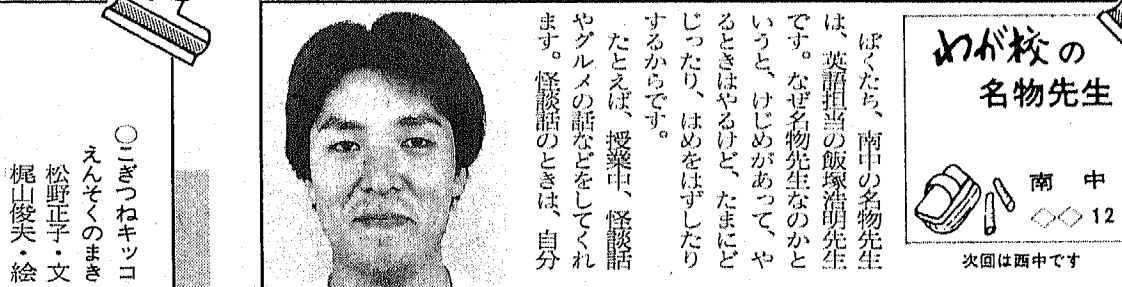 わが校の
名物先生
南中
◇◇12
次回は西中です
ぼくたち、南中の名物先生
は、英語担当の飯塚浩明先生
です。なぜ名物先生なのかと
いうと、けじめがあって、や
るときはやるけど、たまにど
じったり、はめをはずしたり
するからです。
たとえば、授業中、怪談話
やグルメの話などをしてくれ
ます。怪談話のときは、自分
○こぎつねキッコ
えんそくのまき
松野正子・文
梶山俊夫・絵